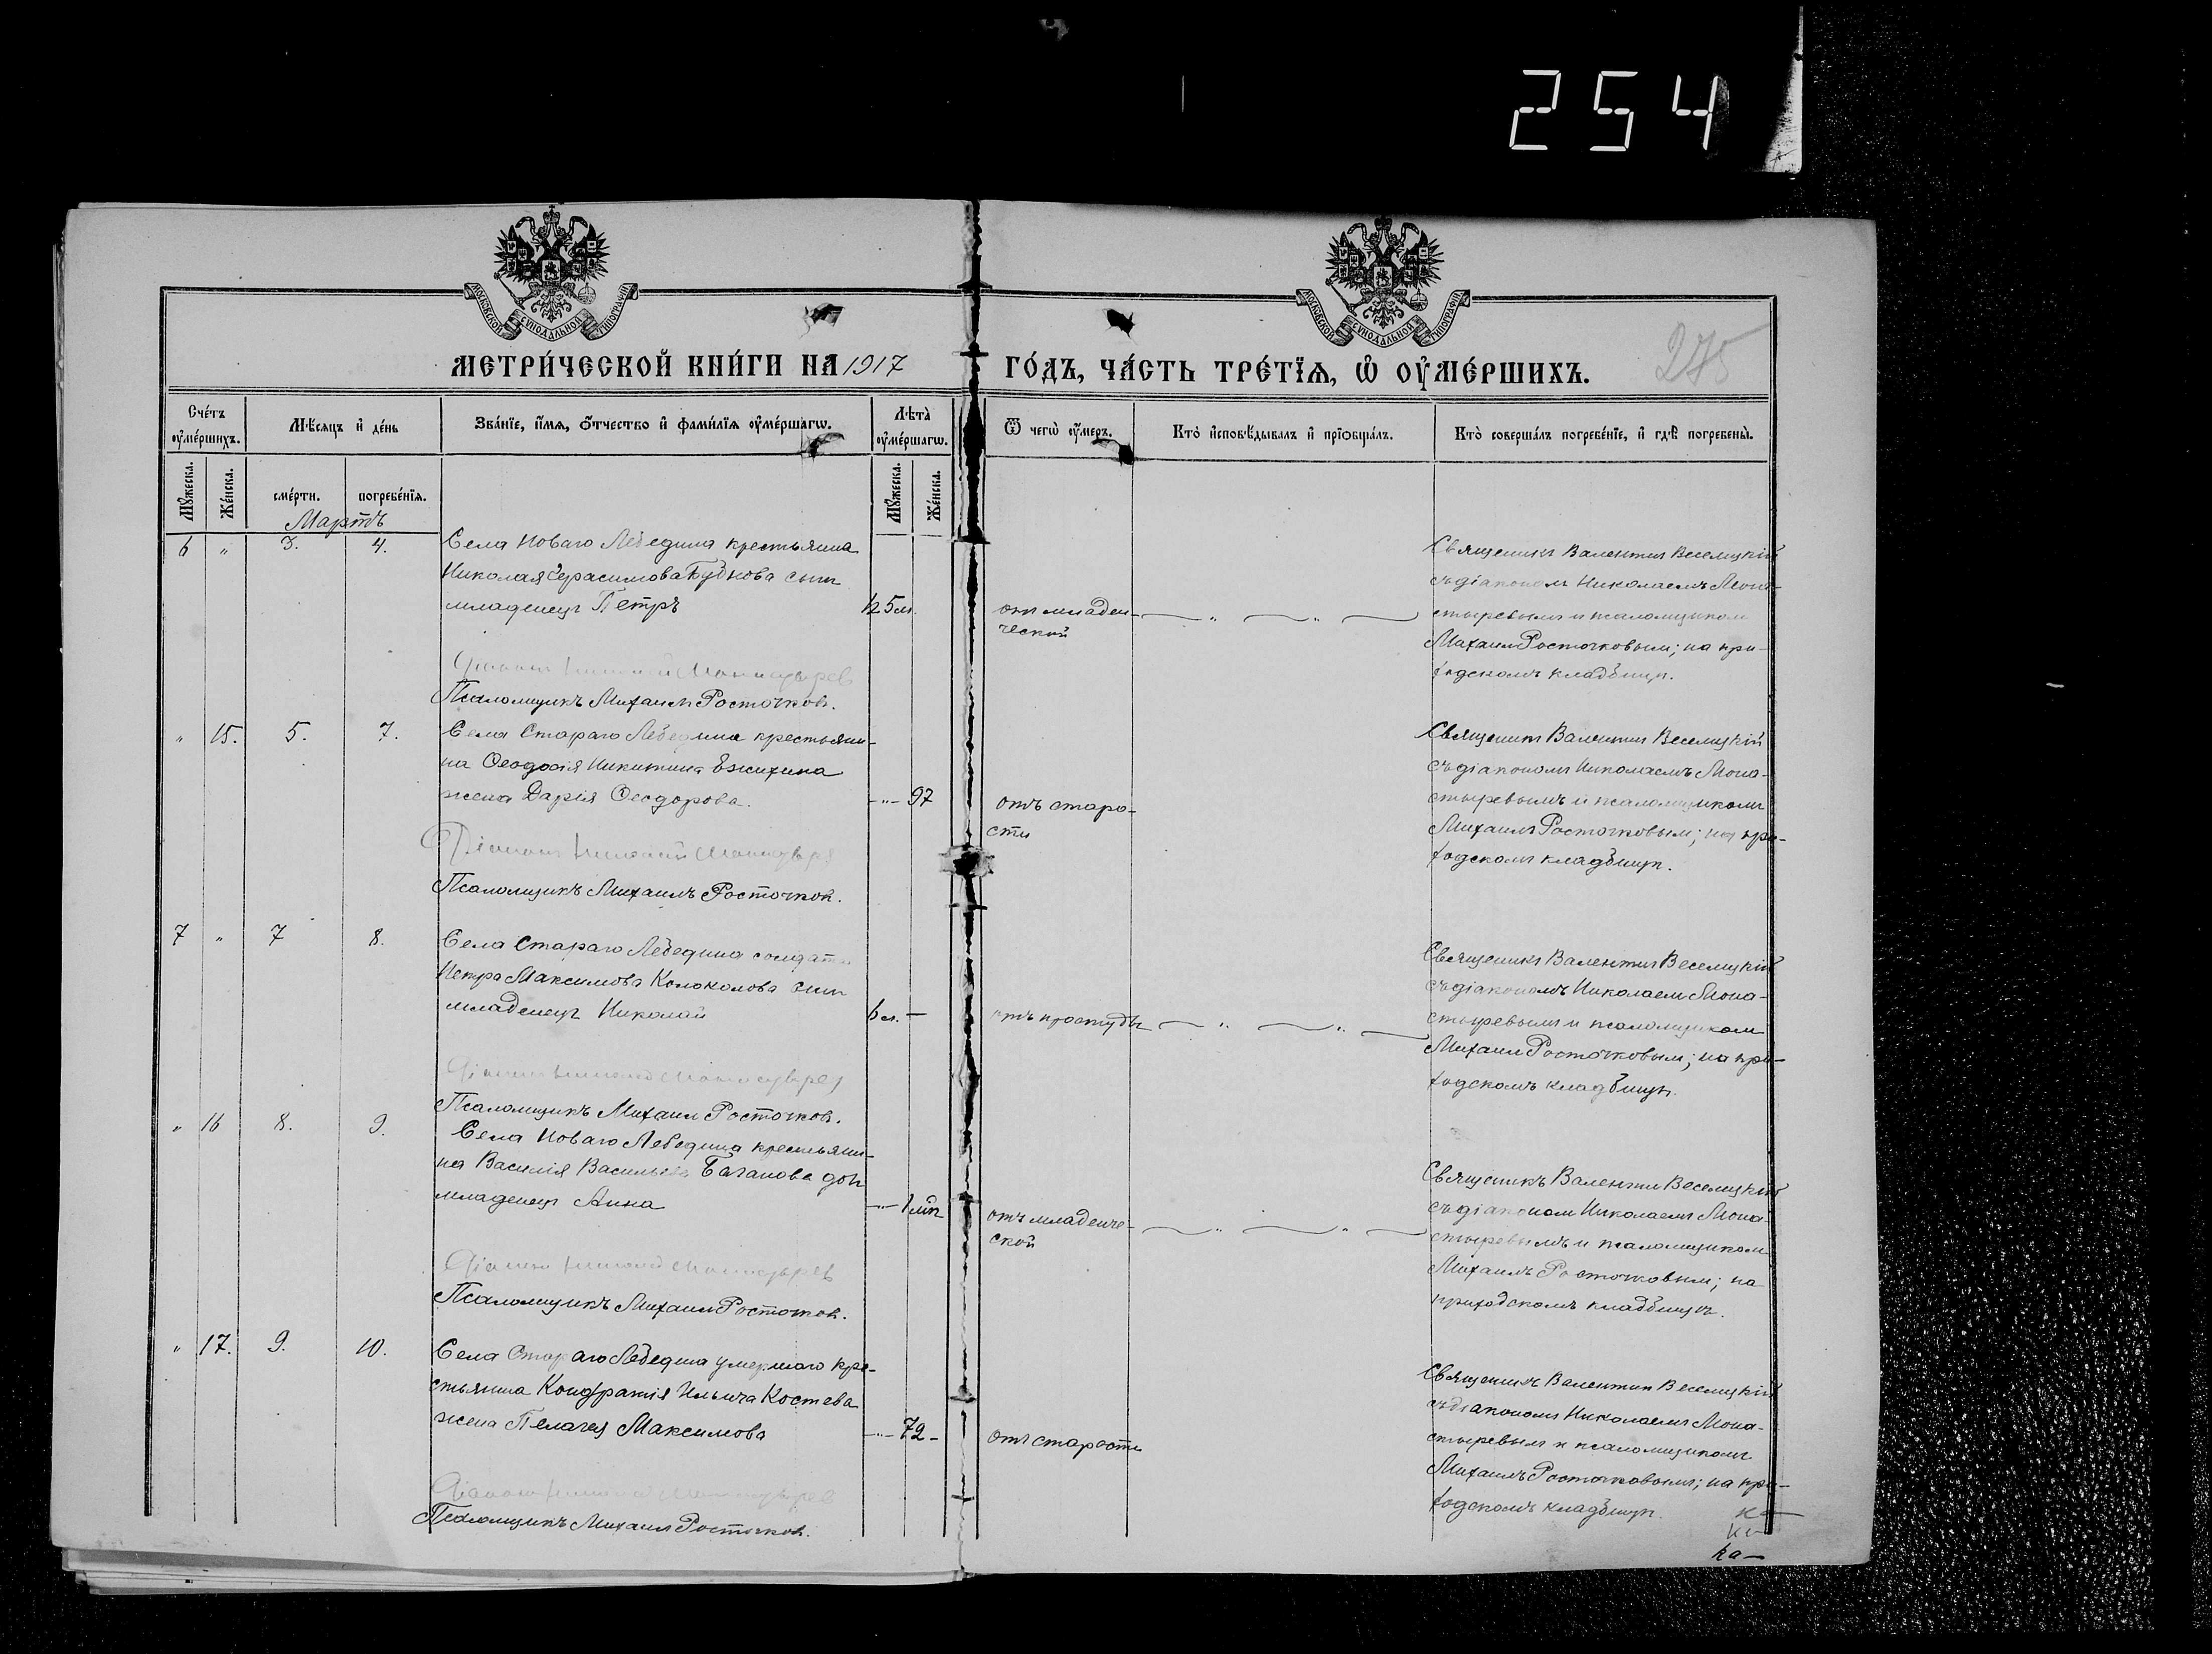 254
МОСКОВСКОЙ СѴНОДАЛЬНОЙ ТИПОГРАФІИ
МОСКОВСКОЙ СѴНОДАЛЬНОЙ ТИПОГРАФІИ
МЕТРИ́ЧЕСКОЙ КНИ́ГИ НА 1917 ГО́ДЪ, ЧА́СТЬ ТРЕ́ТЇѦ, Ѡ҆ ОУ҆МЕ́РШИХЪ.
275
Сче́тъ оу҆ме́ршихъ.
Мѣ́сѧцъ и҆ де́нь
Зва́нїе, и҆́мѧ, ѻ҆́тчество и҆ фами́лїѧ оу҆ме́ршагѡ.
Лѣта̀ оу҆ме́ршагѡ.
Ѿ чегѡ̀ оу҆́меръ.
Кто̀ и҆сповѣ́дывалъ и҆ прїѡбща́лъ.
Кто̀ соверша́лъ погребе́нїе, и҆ гдѣ̀ погребены̀.
Мꙋ́жеска.
Же́нска.
сме́рти.
погребе́нїѧ.
Мꙋ́жеска.
Же́нска.
Мартъ
6 " 3. 4.
Села Новаго Лебедина крестьянина
Николая Герасимова Бубнова сынъ
младенецъ Петръ
5м.
отъ младен-
ческой
Священникъ Валентинъ Веселицкій
съ діакономъ Николаемъ Мона-
стыревымъ и псаломщикомъ
Михаилъ Росточковым; на при-
ходскомъ кладбищѣ.
Діаконъ Николай Монастырев
Псаломщикъ Михаилъ Росточков.
" 15. 5. 7.
Села Стараго Лебедина крестьяни-
на Ѳеодосія Никитина Ежихина
жена Дарія Ѳеодорова.
-"- 97
отъ старо-
сти
Священникъ Валентинъ Веселицкій
съ діакономъ Николаемъ Мона-
стыревымъ и псаломщикомъ
Михаилъ Росточковым; на при-
ходскомъ кладбищѣ.
Діаконъ Николай Монастырев
Псаломщикъ Михаилъ Росточков.
7 " 7 8.
Села Стараго Лебедина солдата
Петра Максимова Колоколова сынъ
младенецъ Николай
6м. -
отъ простуды
Священникъ Валентинъ Веселицкій
съ діакономъ Николаем Мона-
стыревымъ и псаломщиком
Михаил Росточковым; на при-
ходскомъ кладбищѣ.
Діаконъ Николай Монастырев
Псаломщикъ Михаил Росточков.
" 16 8. 9.
Села Новаго Лебедина крестьяни-
на Василія Васильева Баганова дочь
младенецъ Анна
-"- 1
отъ младенче-
ской
Священникъ Валентин Веселицкій
съ діаконом Николаемъ Мона-
стыревымъ и псаломщиком
Михаилъ Росточковым; на
приходскомъ кладбищѣ.
Діаконъ Николай Монастырев
Псаломщикъ Михаил Росточков.
" 17. 9. 10.
Села Стараго Лебедина умершаго кре-
стьянина Кондратія Ильича Костева
жена Пелагея Максимова
-"- 72-
отъ старости
Священникъ Валентин Веселицкій
съ діакономъ Николаемъ Мона-
стыревым и псаломщикомъ
Михаилъ Росточковымъ; на при-
ходскомъ кладбищѣ.
Діаконъ Николай Монастырев
Псаломщикъ Михаил Росточков.
ка-